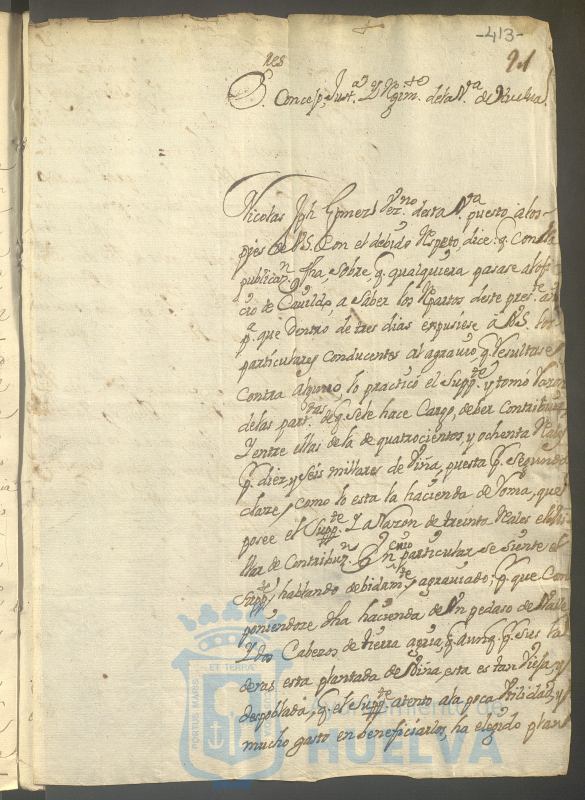 -413-
21
S.res Concejo, Just.a Y Regim.to desta V.a de Huelva.
Nicolas Jph. Gomez Vez.no desta V.a puesto alos
pies de V.S. Con el debido Respeto, dice: q. Con la
publicaz.n fha, sobre q. qualquiera pasase al ofi
cio de Cavildo, a saber los Repartos deste pres.te año
p.a que dentro de tres dias expusiese a V.S. los
particulares conducentes al agravio q. resultase
Contra alguno, lo practicó el Supp.te y tomó razon
delas part.das de q. sele hace Cargo, deber Contribuir,
Y entre ellas de la de quatrocientos, y ochenta Reales
p. diez, y seis millares de Viña, puesta p. segunda
clase, como lo esta la hacienda de Loma, que
posee el Supp.te Y a Razon de treinta Reales el Mi
llar de Contribuz.n En cuio particular se siente el
Supp.te, hablando debidam.te, agraviado; p. que Com
poniendose dha hacienda de Un pedaso de Valle
Y dos Cabezos de tierra agria, q. aunq. p. sus la
deras esta plantada de Viña, esta es tan Vieja, y
despoblada, q. el Supp.te atento ala poca Utilidad, y
mucho gasto en beneficiarlos, ha elegido plan
ET TERRAE
PORTUS MARIS
Ayuntamiento de
HUELVA